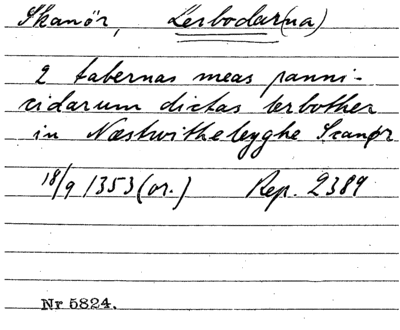 Skanör, Lerbodar(na)
2 tabernas meas panni-
cidarum dictas lerbother
in Næstwithelyghe Scanør
18/9 1353 (or.) Rep. 2389
Nr 5824.